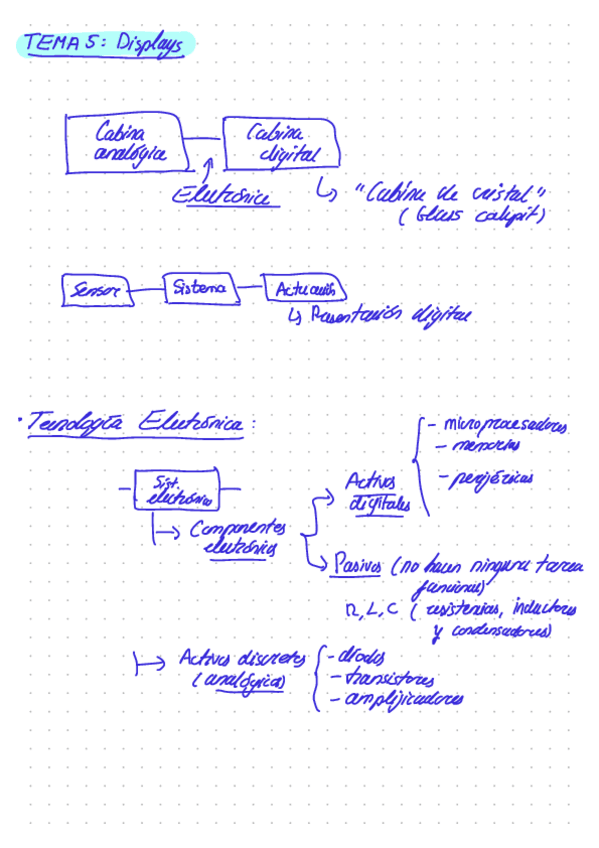 TEMA 5: Displays
Cabina
analógica
Cabina
digital
Electrónica
↳ "Cabina de cristal"
(Glass cockpit)
Sensor
Sistema
Actuación
↳ Presentación digital
· Tecnología Electrónica:
Sist.
electrónico
→ Componentes
electrónicos
Activos
digitales
- microprocesadores
- memorias
- periféricos
Pasivos (no hacen ninguna tarea
funcional)
R, L, C (resistencias, inductores
y condensadores)
→ Activos discretos
(analógicos)
- diodos
- transistores
- amplificadores